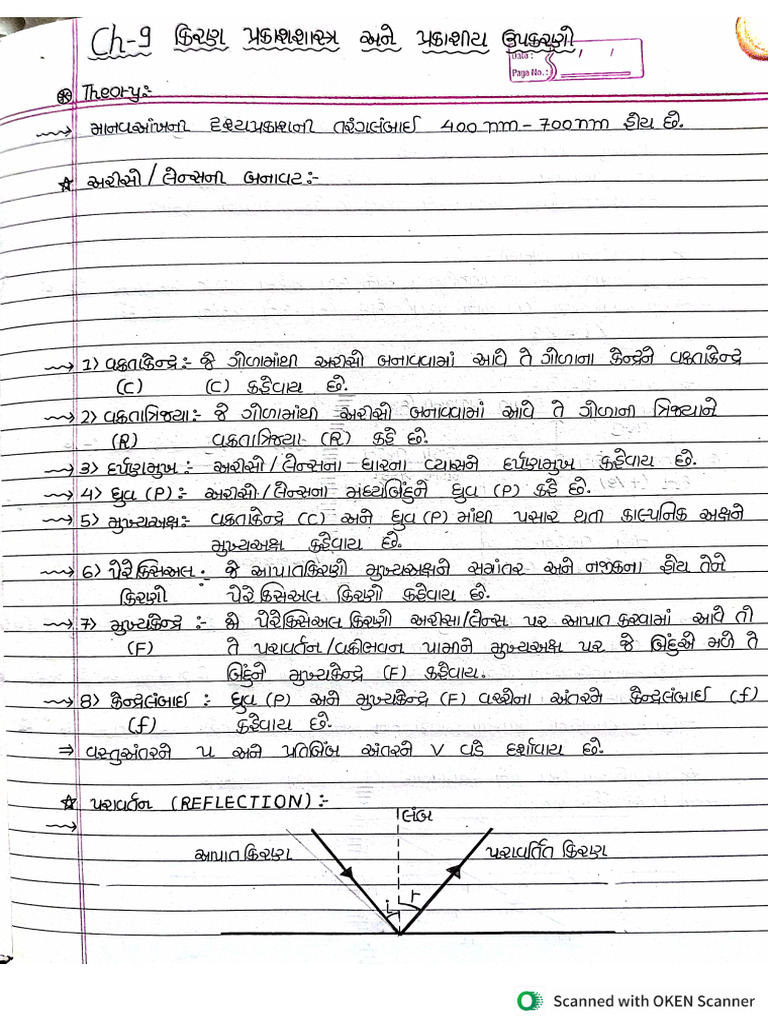 Ch-9 કિરણ પ્રકાશશાસ્ત્ર અને પ્રકાશીય ઉપકરણો
Date : / /
Page No. :
Theory:-
માનવઆંખની દૃશ્યપ્રકાશની તરંગલંબાઈ 400 nm - 700 nm હોય છે.
☆ અરીસો / લેન્સની બનાવટ :-
1) વક્રતાકેન્દ્ર :- જે ગોળામાંથી અરીસો બનાવવામાં આવે તે ગોળાના કેન્દ્રને વક્રતાકેન્દ્ર
(C) (C) કહેવાય છે.
2) વક્રતાત્રિજ્યા :- જે ગોળામાંથી અરીસો બનાવવામાં આવે તે ગોળાની ત્રિજ્યાને
(R) વક્રતાત્રિજ્યા (R) કહે છે.
3) દર્પણમુખ :- અરીસો / લેન્સના ધારના વ્યાસને દર્પણમુખ કહેવાય છે.
4) ધ્રુવ (P) :- અરીસો / લેન્સના મધ્યબિંદુને ધ્રુવ (P) કહે છે.
5) મુખ્યઅક્ષ :- વક્રતાકેન્દ્ર (C) અને ધ્રુવ (P) માંથી પસાર થતા કાલ્પનિક અક્ષને
મુખ્યઅક્ષ કહેવાય છે.
6) પેરેક્સિઅલ :- જે આપાતકિરણો મુખ્યઅક્ષને સમાંતર અને નજીકના હોય તેને
કિરણો પેરેક્સિઅલ કિરણો કહેવાય છે.
7) મુખ્યકેન્દ્ર :- જો પેરેક્સિઅલ કિરણો અરીસા/લેન્સ પર આપાત કરવામાં આવે તો
(F) તે પરાવર્તન/વક્રીભવન પામીને મુખ્યઅક્ષ પર જે બિંદુએ મળે તે
બિંદુને મુખ્યકેન્દ્ર (F) કહેવાય.
8) કેન્દ્રલંબાઈ : ધ્રુવ (P) અને મુખ્યકેન્દ્ર (F) વચ્ચેના અંતરને કેન્દ્રલંબાઈ (f)
(f) કહેવાય છે.
⇒ વસ્તુઅંતરને u અને પ્રતિબિંબ અંતરને v વડે દર્શાવાય છે.
☆ પરાવર્તન (REFLECTION) :-
લંબ
આપાતકિરણ પરાવર્તિત કિરણ
i r
Scanned with OKEN Scanner